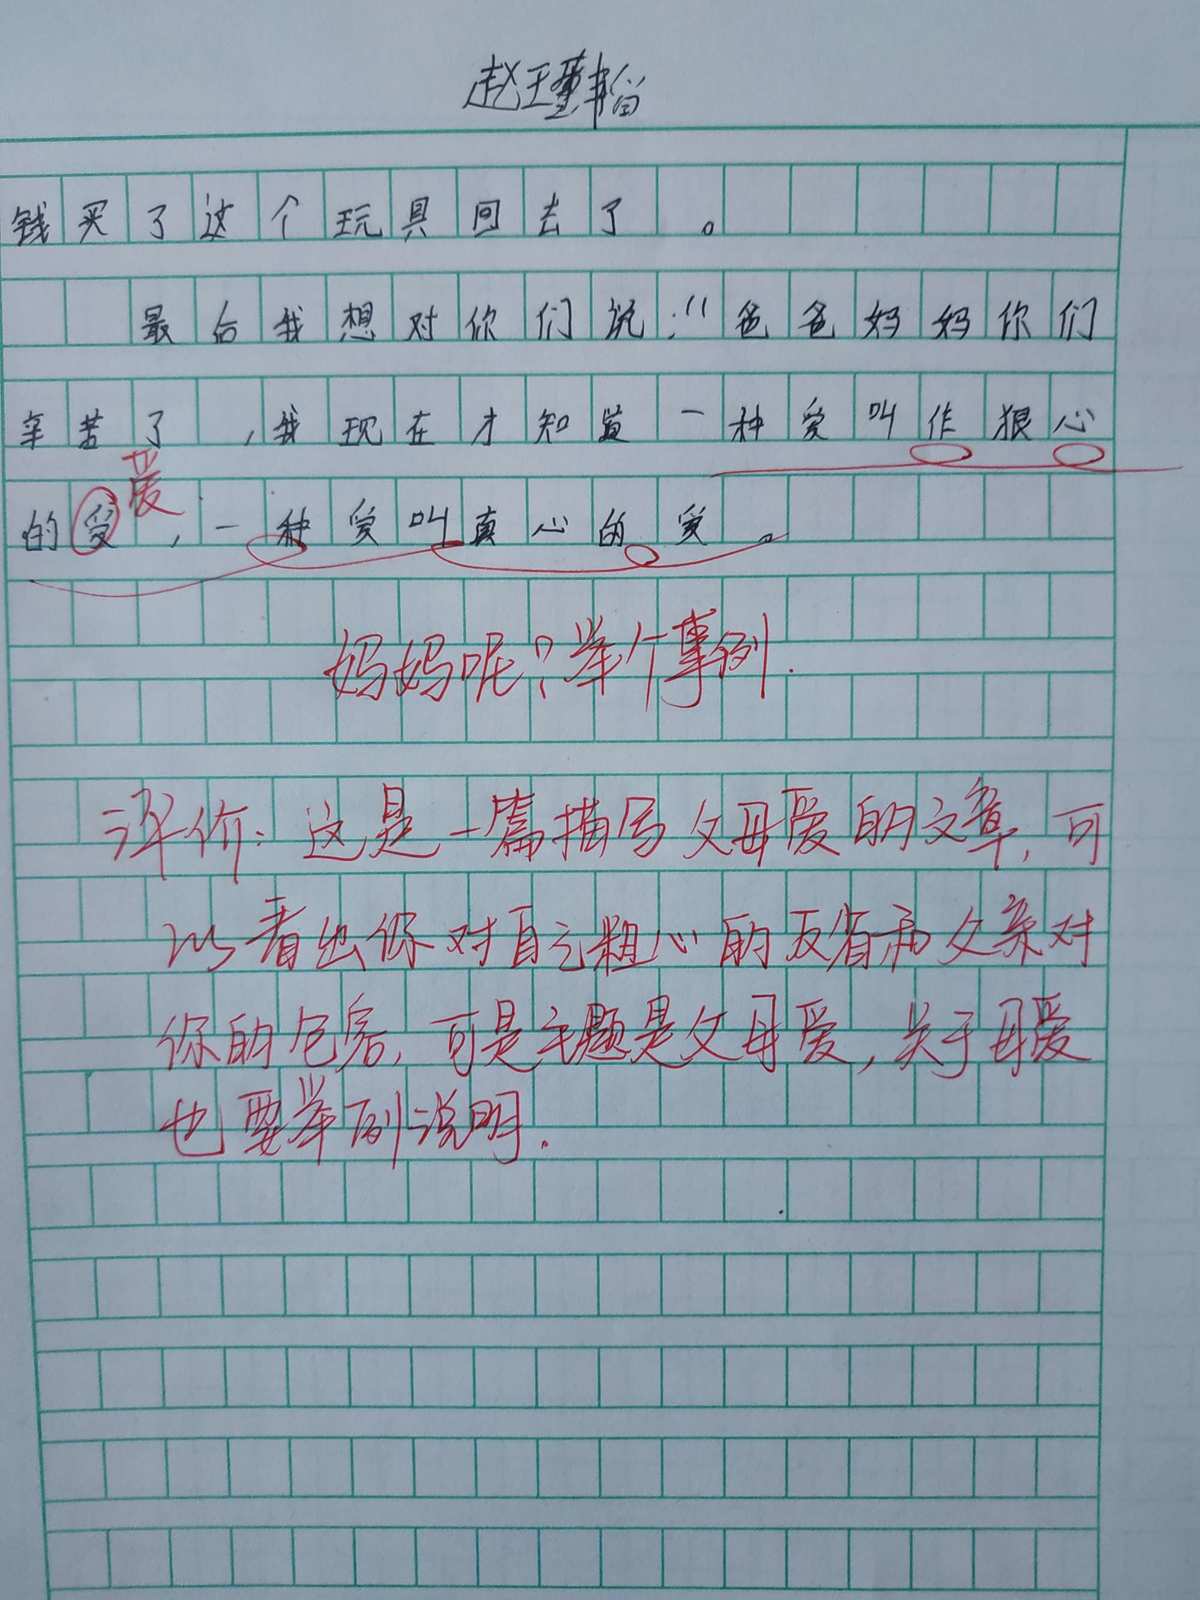 赵王董韩
钱买了这个玩具回去了。
最后我想对你们说:"爸爸妈妈你们
辛苦了,我现在才知道一种爱叫作狠心
的爱,一种爱叫真心的爱。
爱
妈妈呢?举个事例.
评价:这是一篇描写父母爱的文章,可
以看出你对自己粗心的反省和父亲对
你的包容,可是主题是父母爱,关于母爱
也要举例说明.